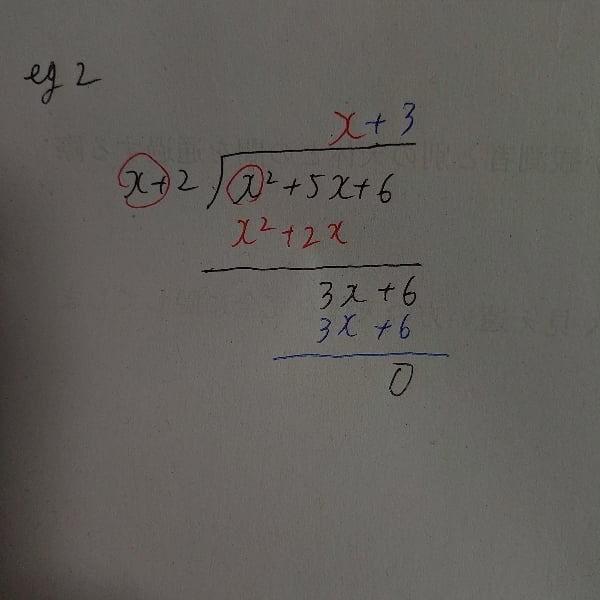 eg 2
x + 3
x+2 ) x²+5x+6
x²+2x
3x +6
3x +6
0